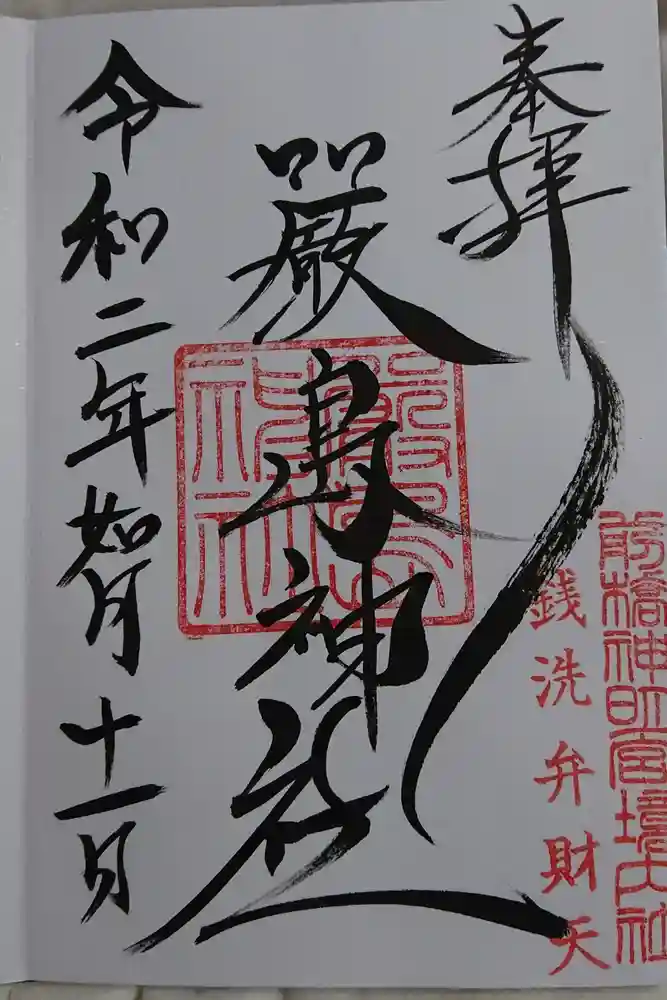 奉拝
前橋神明宮境内社
銭洗弁財天
厳島神社
厳島神社
令和二年如月十一日